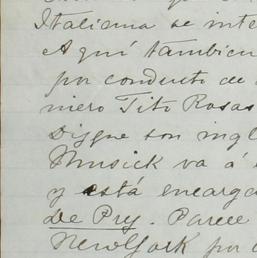 Italiana se inte
Aquí tambien
por conducto de
niero Tito Rosas
son ingl
Musick va á
y está encarga
De Pry. Parece
NewYork por